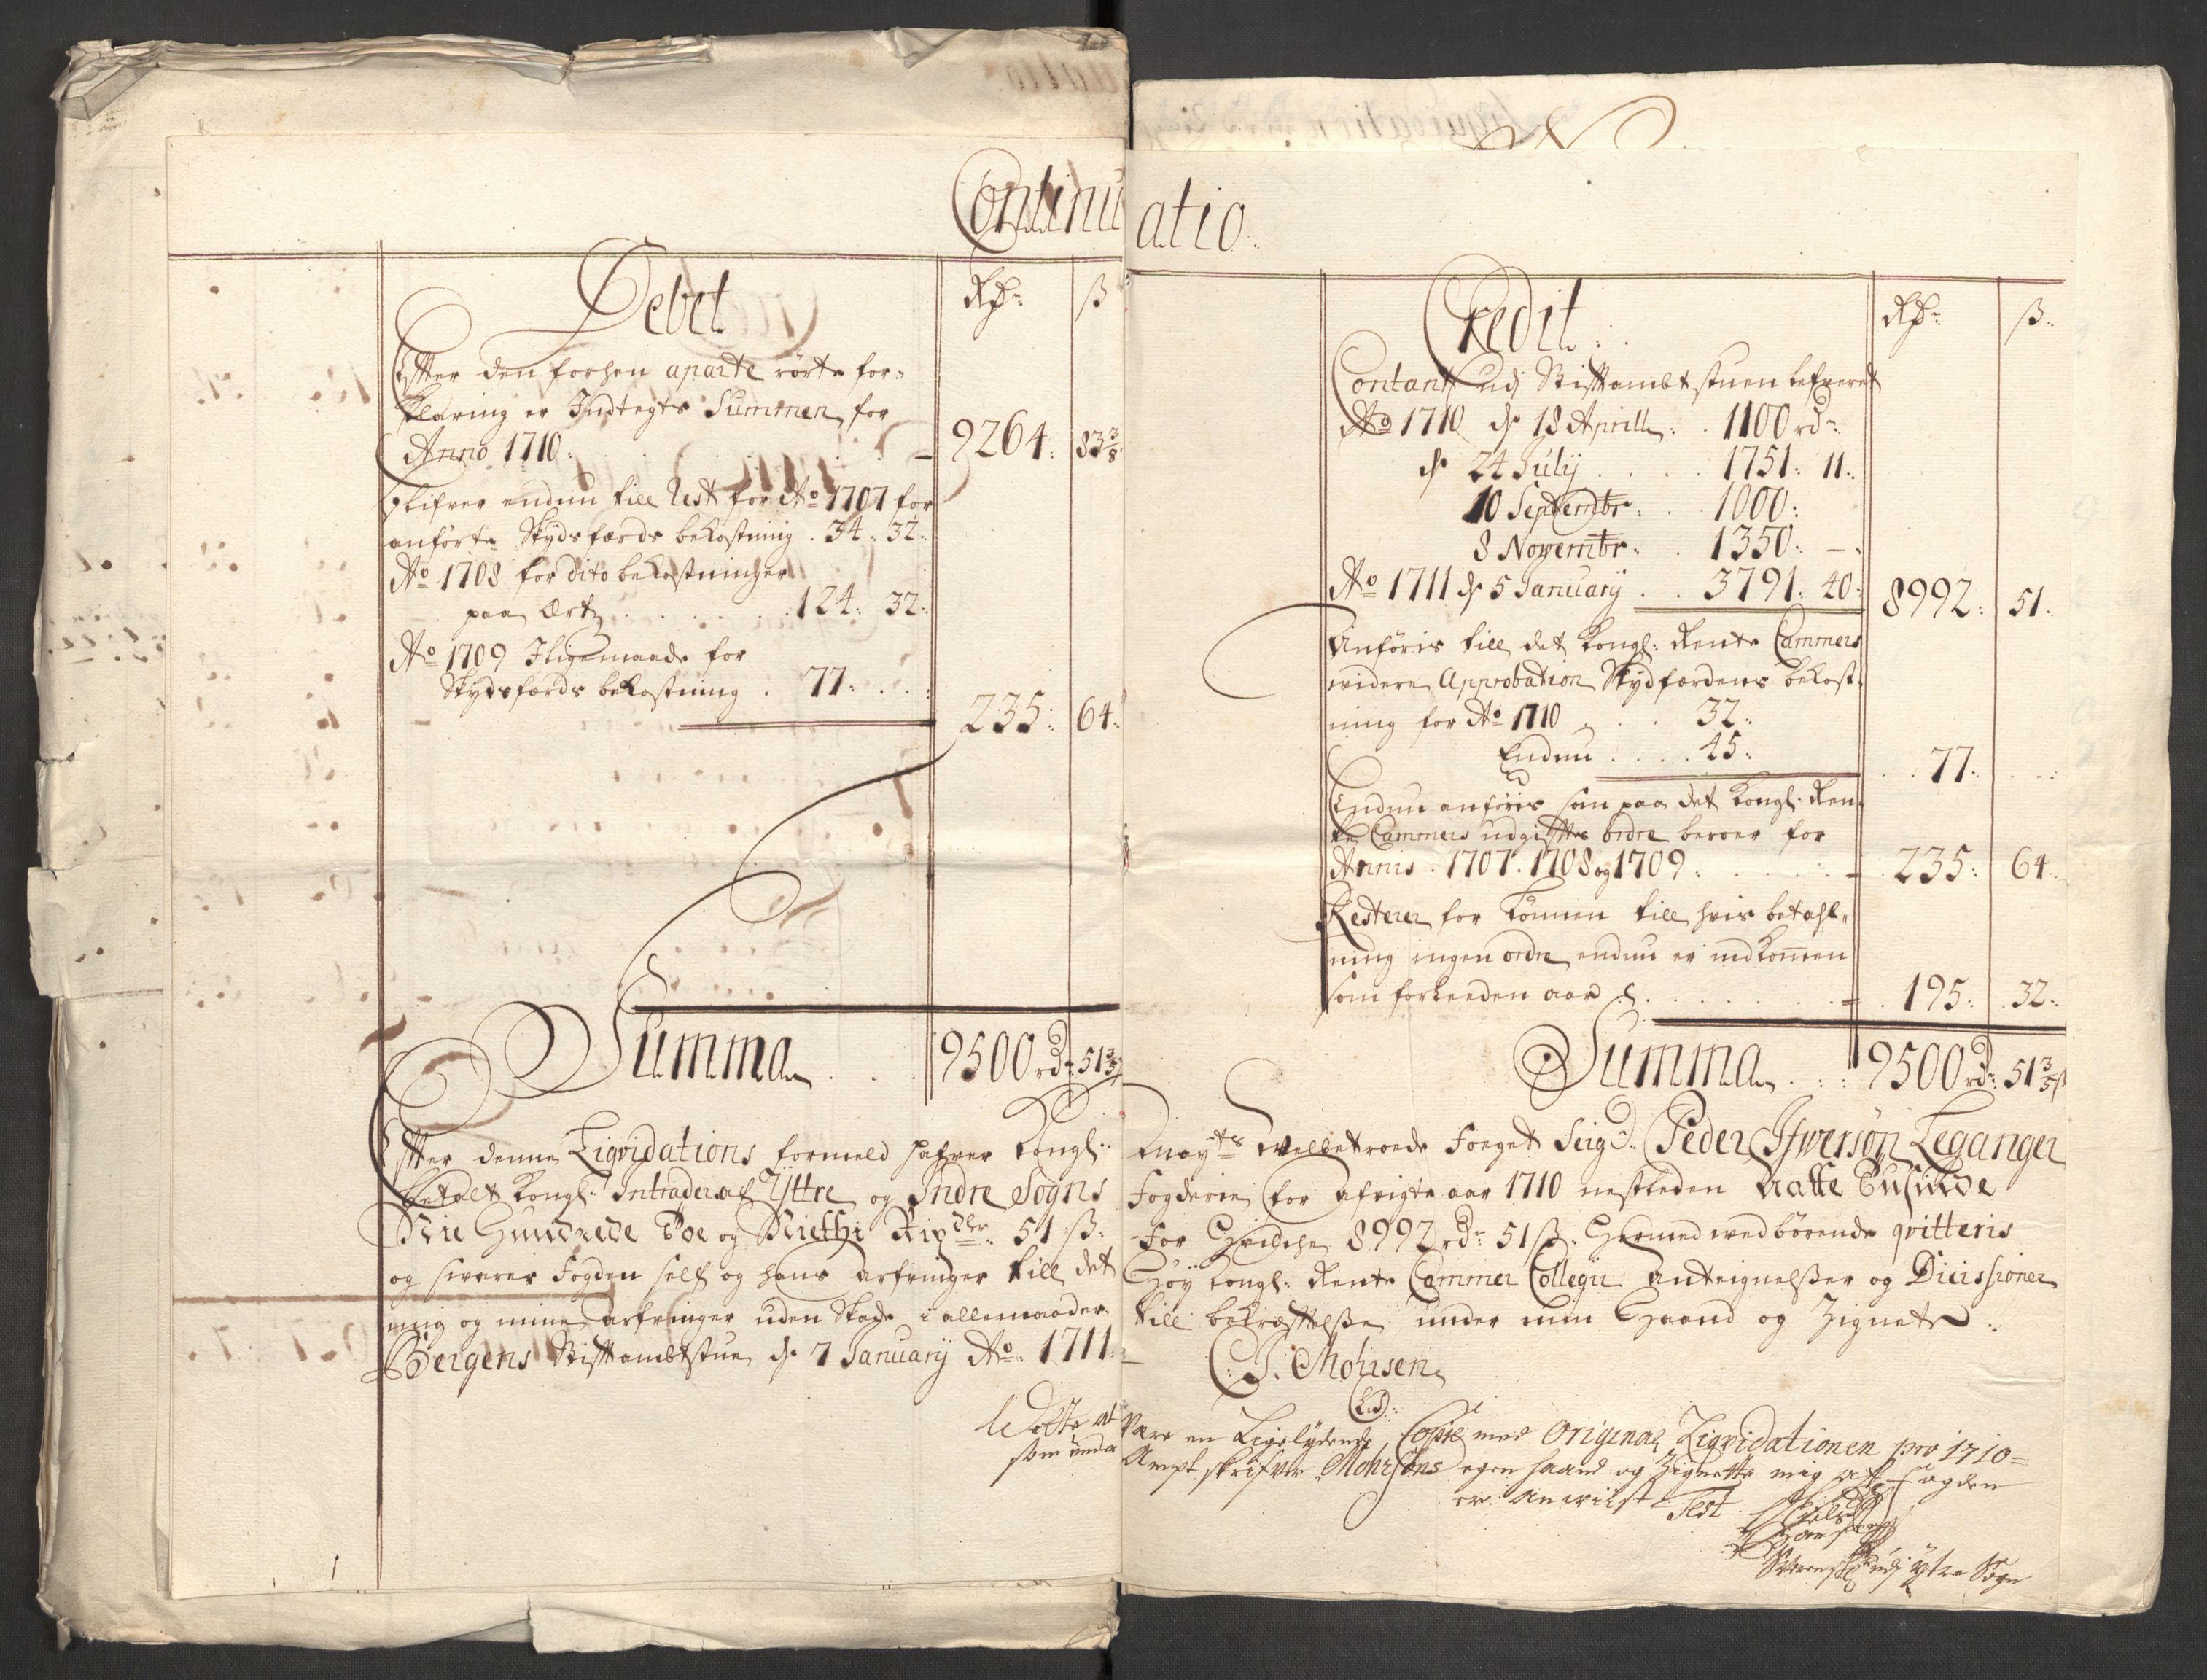 Continuatio
Debet
Rd:
ß
Effter den forhen aparte rörte for-
klaring er Indtegts Summen for
Anno 1710: 9264: 83 3/8
Blifver endnu till Rest for Ao 1707 for
anförte Skydsfærds bekostning . 34 : 32:
Ao 1708 for dito bekostninger
paa Ært . . . 124: 32:
Ao 1709 Iligemaade for
Skydsfærds bekostning . 77: . . :
235: 64:
Summa . . . 9500 rd: 51 3/5
Credit:
Rd:
ß:
Contant udj Stiftambtstuen lefveret
Ao 1710 d. 18 Aprill: . 1100 rd:
d. 24 Julij . . . . 1751: 11:
10 Septembr: . . 1000:
8 Novembr: . 1350: —:
Ao 1711 d. 5 Januarij . . 3791: 40: 8992: 51:
Anföris till det Kongl: Rente Cammers
widere Approbation Skydfærdens bekost-
ning for Ao 1710 . . 32:
Endnu . . . . 45: 77: . . :
Endnu anföris som paa det Kongl: Ren-
te Cammers udgiffts ordre beroer for
Annis . 1707. 1708 og 1709: . . . 235: 64:
Resterer for Können till hvis betahl-
ning ingen ordre endnu er indkommen
som forleeden aar . . . . 195: 32:
Summa . . : 9500 rd: 51 3/5 ß
Effter denne Liqvidations formeld hafver Kongl: Mayts welbetroede Foeget Seigr: Peder Ifwersøn Leganger
betalt Kongl: Intrader af Yttre og Indre Sogns Fogderie for afvigte aar 1710 nestleden Aatte Tusinde
Nie Hundrede Toe og Nietti Rixdlr: 51 ß: For Hvilche 8992 rd: 51 ß: Hermed wedbörende qvitteris
og svarer Fogden self og hans Arfvinger till det Höy Kongl: Rente Cammer Collegii Anteignelßer og Dicissioner
mig og mine Arfvinger uden Skade i allemaader. till bekræfftelße under min Haand og Zignete:
Bergens Stiftambtstue d. 7 Januarij Ao: 1711:
C. J. Mohrsen
(L.S):
at Være en Ligelydende Copie med Original Liqvidationen pro 1710=
som under Ampt skrifver Mohrsöns egen haand og Zignette mig af Fogden
er anviist Test
udj ytre Sogn